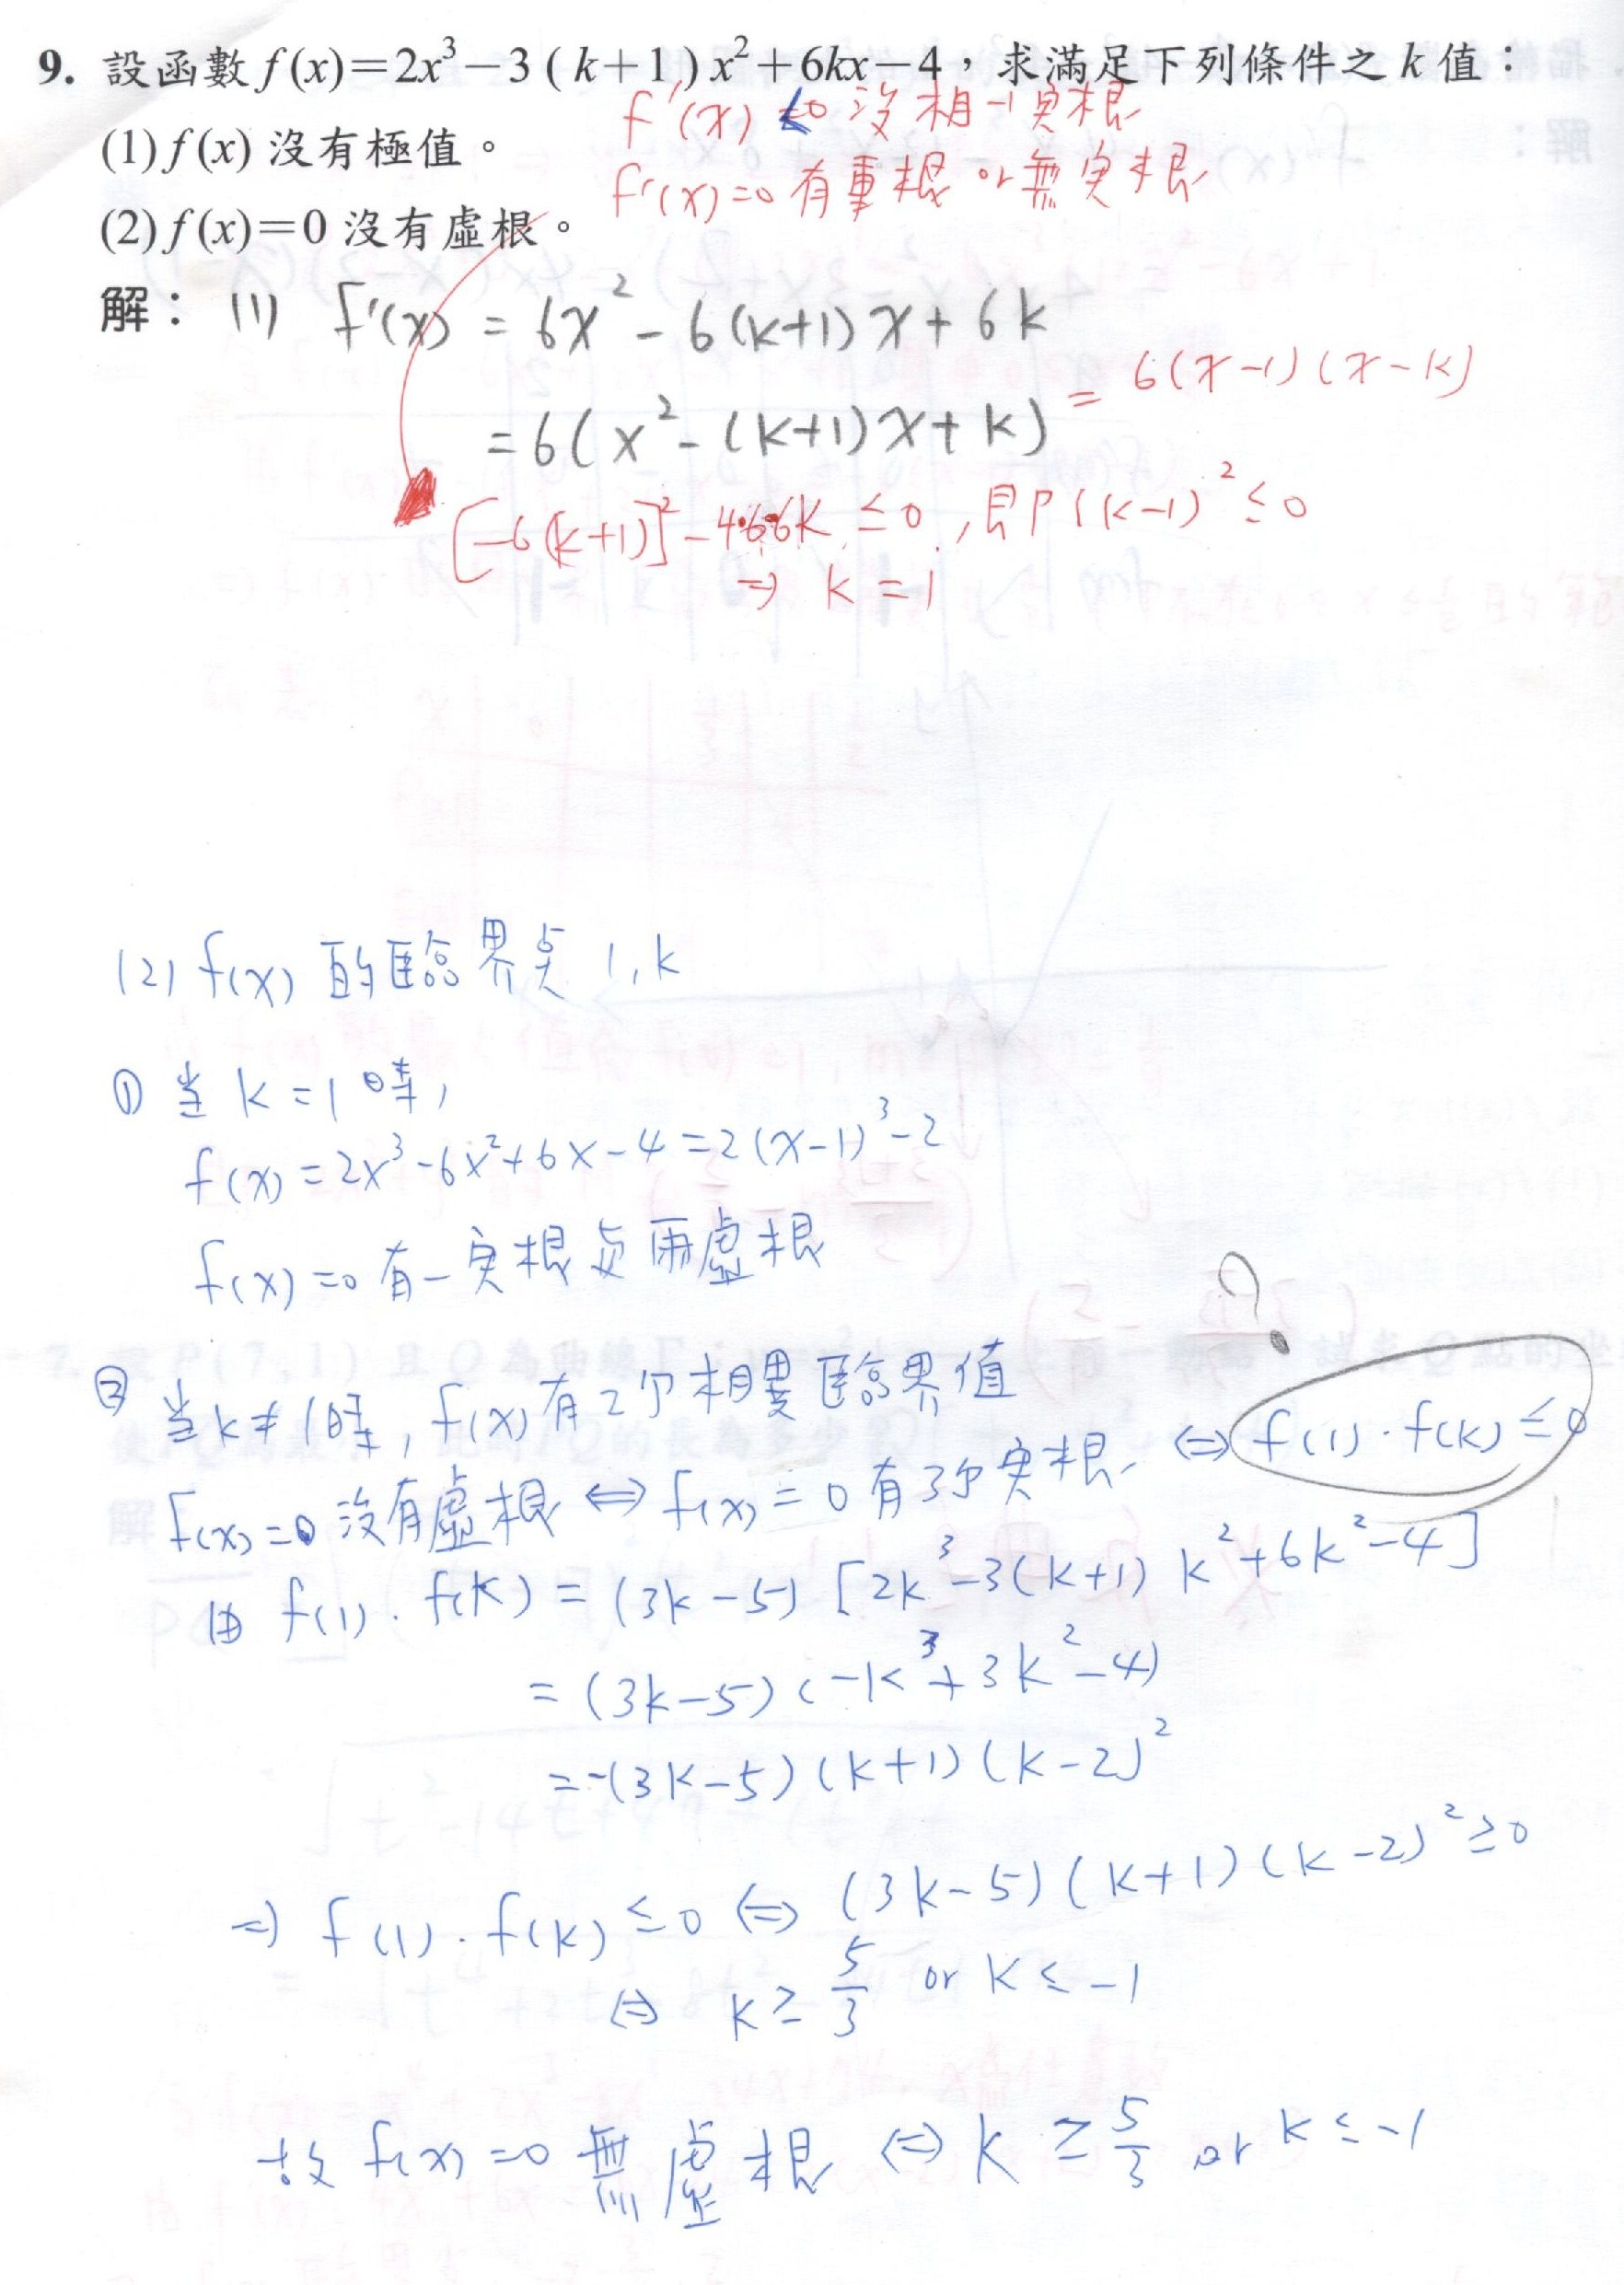 9. 設函數 f(x)=2x³-3(k+1)x²+6kx-4，求滿足下列條件之 k 值：
f'(x) 沒相 實根
(1) f(x) 沒有極值。
f'(x)=0 有重根 or 無実根
(2) f(x)=0 沒有虛根。
解：(1) f'(x) = 6x²-6(k+1)x+6k
=6(x²-(k+1)x+k) = 6(x-1)(x-k)
[-6(k+1)]²-4·6·6k ≤0, 即 (k-1)²≤0
⇒ k=1
(2) f(x) 的臨界点 1, k
① 当 k=1 時,
f(x)=2x³-6x²+6x-4=2(x-1)³-2
f(x)=0 有一実根与兩虛根
?
② 当k≠1時, f(x) 有2个相異臨界值
f(x)=0 沒有虛根 ⇔ f(x)=0 有3个実根 ⇔ f(1)·f(k)≤0
由 f(1)·f(k) = (3k-5)[2k³-3(k+1)k²+6k²-4]
= (3k-5)(-k³+3k²-4)
=-(3k-5)(k+1)(k-2)²
⇒ f(1)·f(k)≤0 ⇔ (3k-5)(k+1)(k-2)²≥0
⇔ k≥5/3 or k≤-1
故 f(x)=0 無虛根 ⇔ k≥5/3 or k≤-1